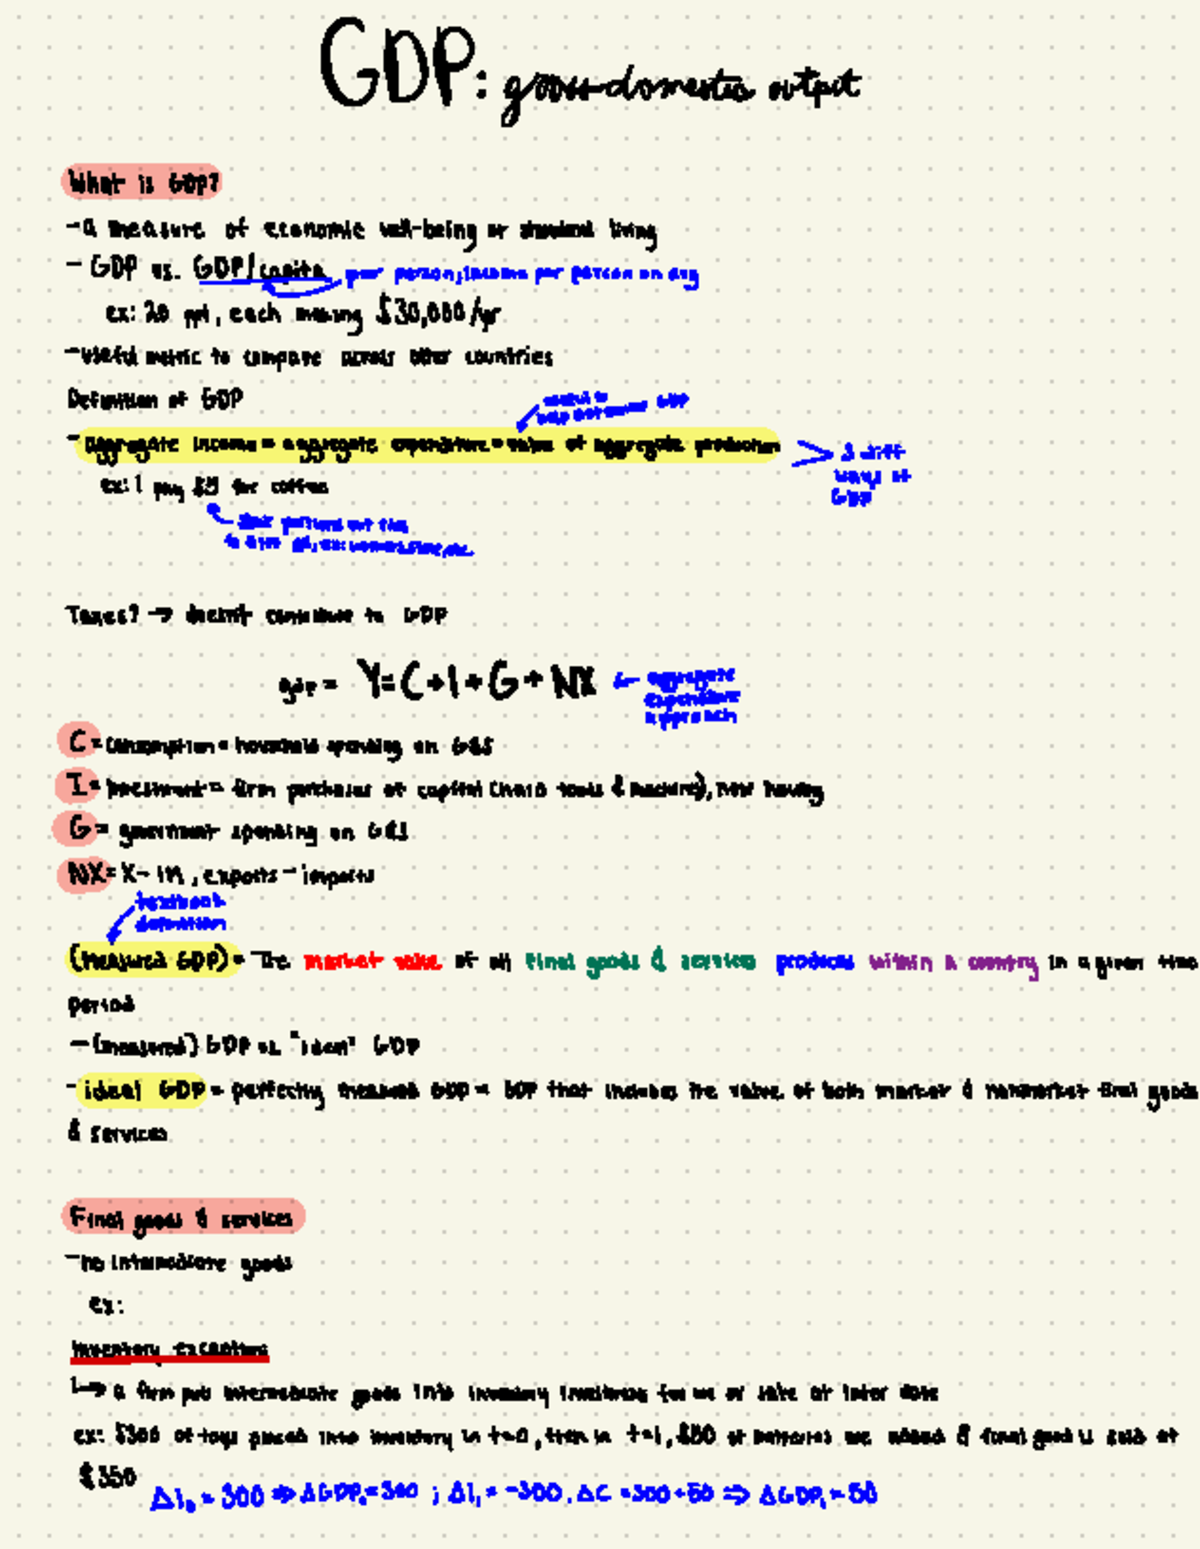 GDP: gross domestic output
What is GDP?
- a measure of economic well-being or standard living
- GDP vs. GDP/capita per person, income per person on avg
ex: 20 ppl, each making $30,000/yr
- useful metric to compare across other countries
Definition of GDP
useful to
help determine GDP
- aggregate income = aggregate expenditure = value of aggregate production
3 diff
ways of
GDP
ex: I pay $5 for coffee
Taxes? → doesn't contribute to GDP
gdp = Y=C+I+G+NX ← aggregate
expenditure
approach
C = Consumption = household spending on G&S
I = investment = firm purchases of capital (hard tools & machines), new housing
G = government spending on G&S
NX = X - IM, exports - imports
textbook
definition
(measured GDP) = The market value of all final goods & services produced within a country in a given time
period
- (measured) GDP vs. "ideal" GDP
- ideal GDP = perfectly measured GDP = GDP that includes the value of both market & nonmarket final goods
& services
Final goods & services
- no intermediate goods
ex:
Inventory Exception
↳ a firm puts intermediate goods into inventory for use or sale at later date
ex: $300 of toys placed into inventory in t=0, then in t=1, $50 of batteries are added & final good is sold at
$350
ΔI₀ = 300 ⇒ ΔGDP₀ = 300 ; ΔI₁ = -300, ΔC = 300+50 ⇒ ΔGDP₁ = 50